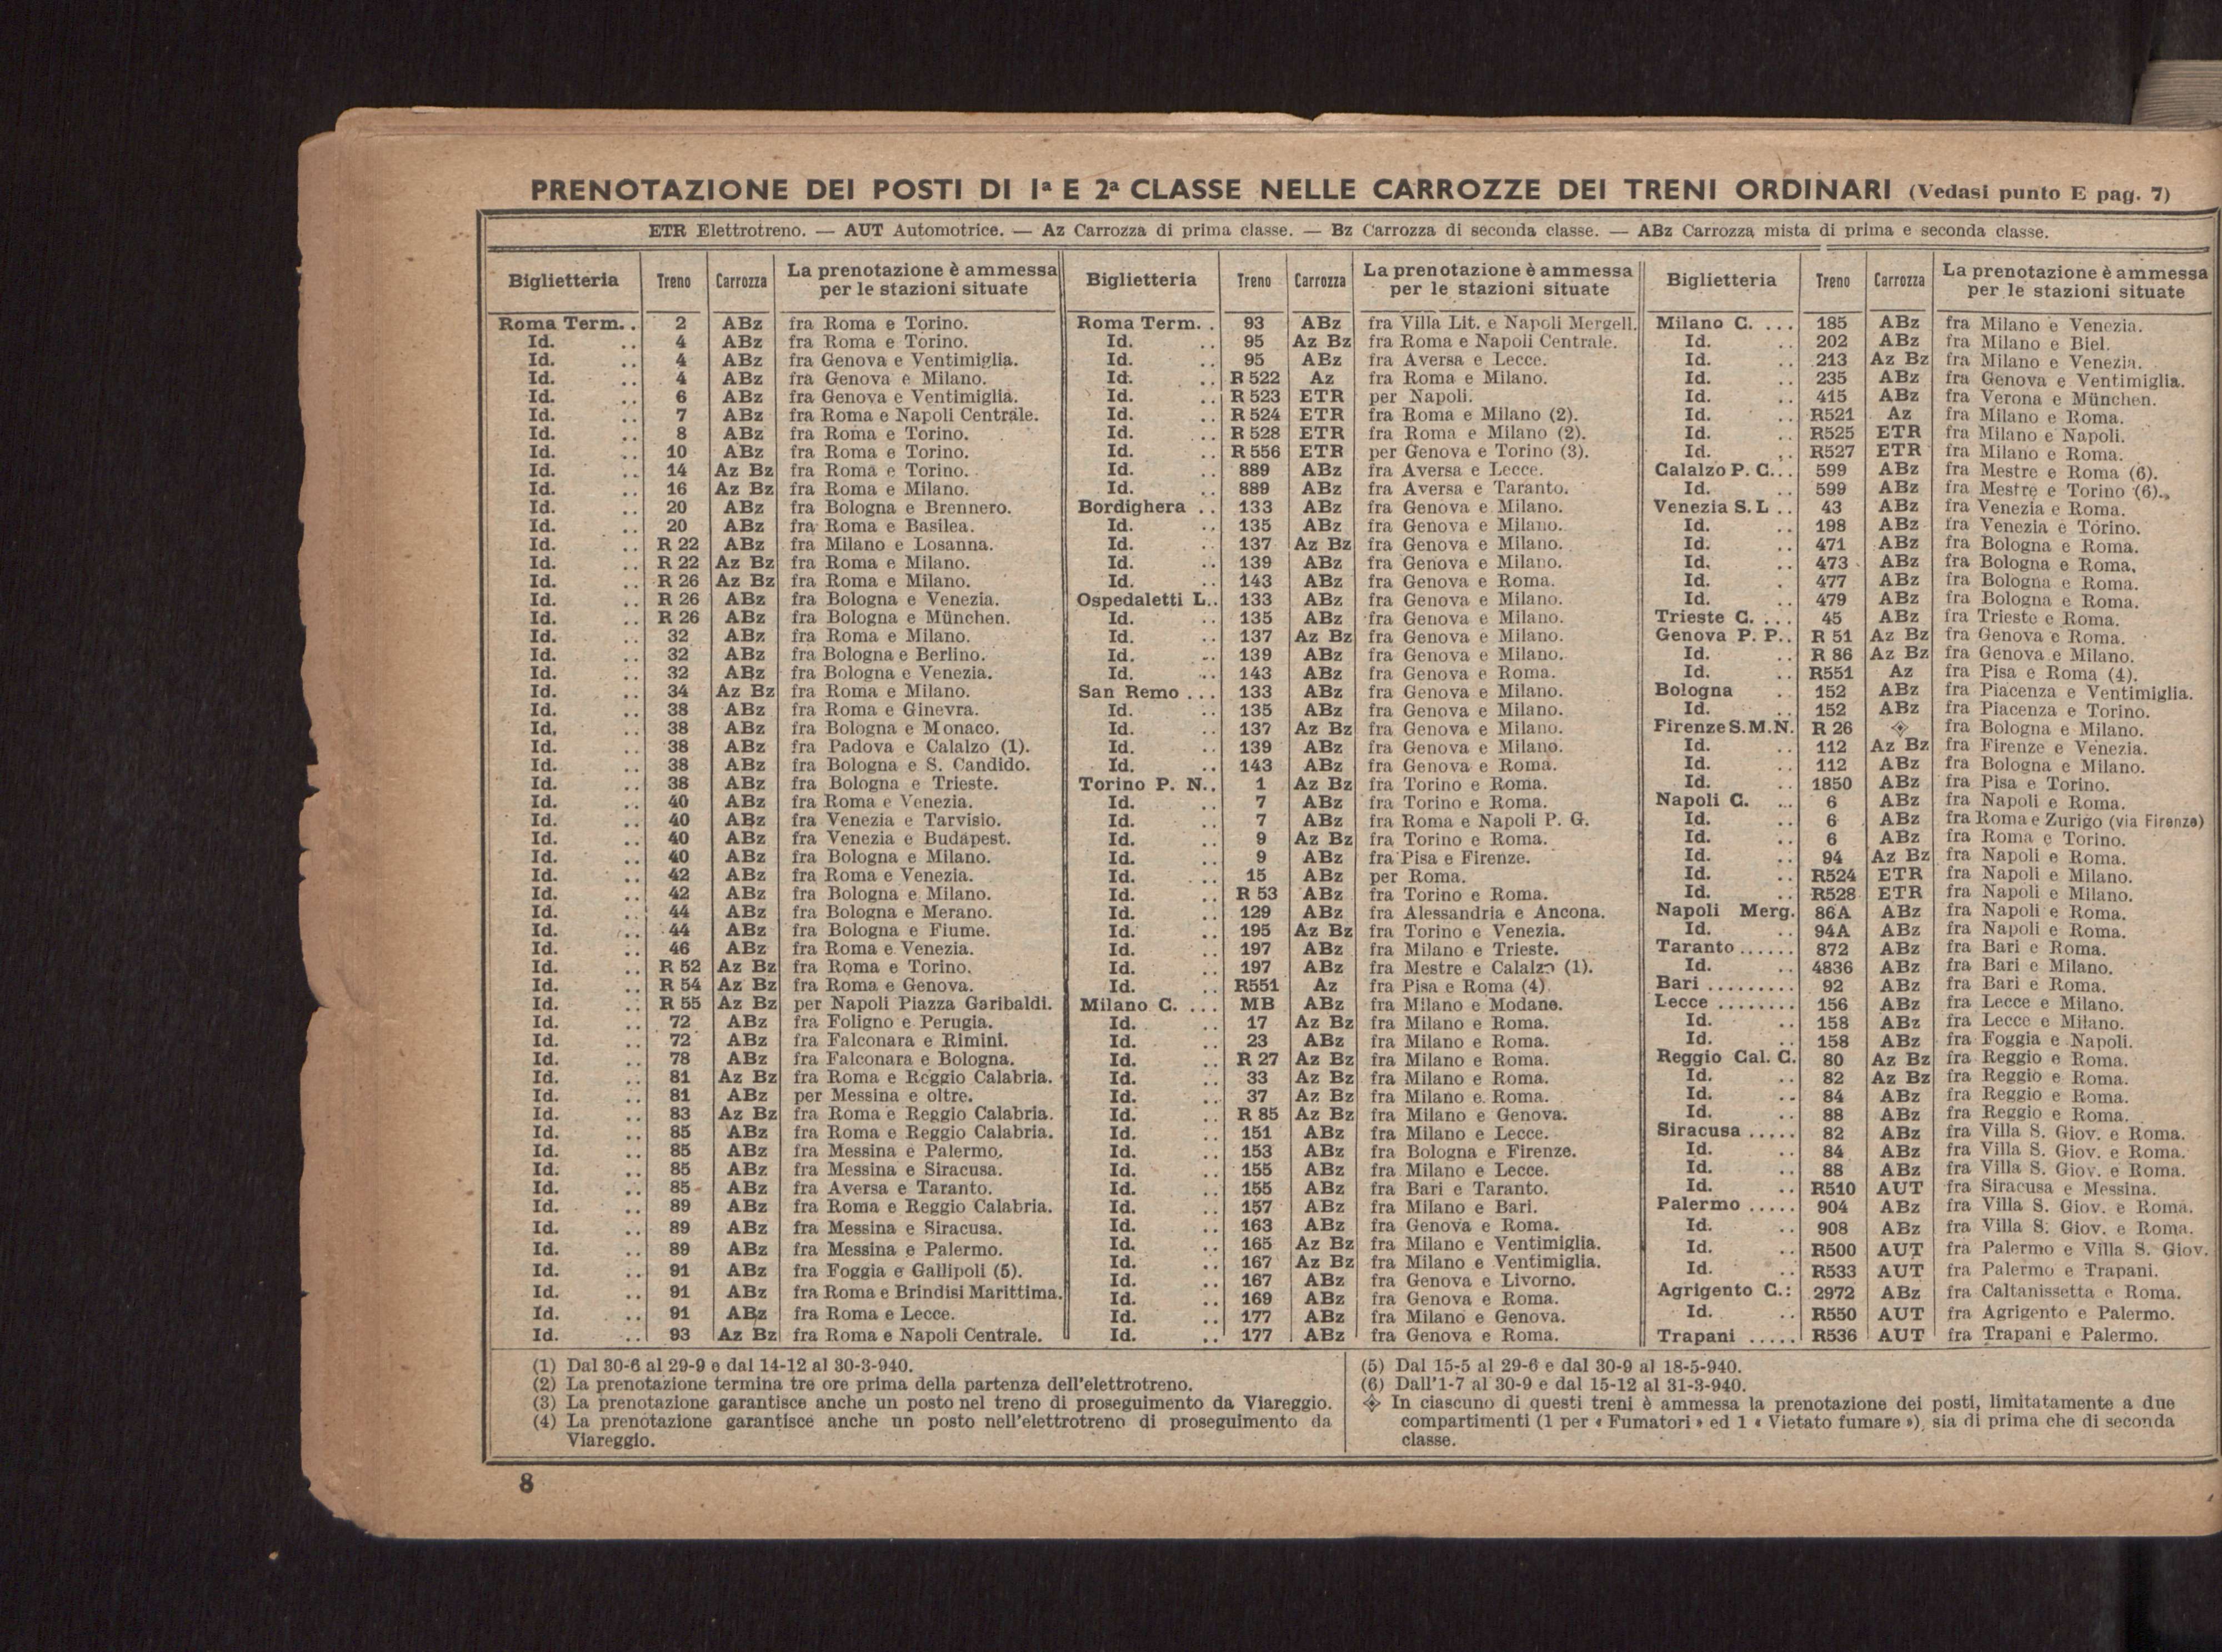 PRENOTAZIONE DEI POSTI DI 1ª E 2ª CLASSE NELLE CARROZZE DEI TRENI ORDINARI (Vedasi punto E pag. 7)
ETR Elettrotreno. — AUT Automotrice. — Az Carrozza di prima classe. — Bz Carrozza di seconda classe. — ABz Carrozza mista di prima e seconda classe.
Biglietteria Treno Carrozza La prenotazione è ammessa per le stazioni situate
Roma Term. . 2 ABz fra Roma e Torino.
Id. .. 4 ABz fra Roma e Torino.
Id. .. 4 ABz fra Genova e Ventimiglia.
Id. .. 4 ABz fra Genova e Milano.
Id. .. 6 ABz fra Genova e Ventimiglia.
Id. .. 7 ABz fra Roma e Napoli Centrale.
Id. .. 8 ABz fra Roma e Torino.
Id. .. 10 ABz fra Roma e Torino.
Id. .. 14 Az Bz fra Roma e Torino.
Id. .. 16 Az Bz fra Roma e Milano.
Id. .. 20 ABz fra Bologna e Brennero.
Id. .. 20 ABz fra Roma e Basilea.
Id. .. R 22 ABz fra Milano e Losanna.
Id. .. R 22 Az Bz fra Roma e Milano.
Id. .. R 26 Az Bz fra Roma e Milano.
Id. .. R 26 ABz fra Bologna e Venezia.
Id. .. R 26 ABz fra Bologna e München.
Id. .. 32 ABz fra Roma e Milano.
Id. .. 32 ABz fra Bologna e Berlino.
Id. .. 32 ABz fra Bologna e Venezia.
Id. .. 34 Az Bz fra Roma e Milano.
Id. .. 38 ABz fra Roma e Ginevra.
Id. .. 38 ABz fra Bologna e Monaco.
Id. .. 38 ABz fra Padova e Calalzo (1).
Id. .. 38 ABz fra Bologna e S. Candido.
Id. .. 38 ABz fra Bologna e Trieste.
Id. .. 40 ABz fra Roma e Venezia.
Id. .. 40 ABz fra Venezia e Tarvisio.
Id. .. 40 ABz fra Venezia e Budapest.
Id. .. 40 ABz fra Bologna e Milano.
Id. .. 42 ABz fra Roma e Venezia.
Id. .. 42 ABz fra Bologna e Milano.
Id. .. 44 ABz fra Bologna e Merano.
Id. .. 44 ABz fra Bologna e Fiume.
Id. .. 46 ABz fra Roma e Venezia.
Id. .. R 52 Az Bz fra Roma e Torino.
Id. .. R 54 Az Bz fra Roma e Genova.
Id. .. R 55 Az Bz per Napoli Piazza Garibaldi.
Id. .. 72 ABz fra Foligno e Perugia.
Id. .. 72 ABz fra Falconara e Rimini.
Id. .. 78 ABz fra Falconara e Bologna.
Id. .. 81 Az Bz fra Roma e Reggio Calabria.
Id. .. 81 ABz per Messina e oltre.
Id. .. 83 Az Bz fra Roma e Reggio Calabria.
Id. .. 85 ABz fra Roma e Reggio Calabria.
Id. .. 85 ABz fra Messina e Palermo.
Id. .. 85 ABz fra Messina e Siracusa.
Id. .. 85 ABz fra Aversa e Taranto.
Id. .. 89 ABz fra Roma e Reggio Calabria.
Id. .. 89 ABz fra Messina e Siracusa.
Id. .. 89 ABz fra Messina e Palermo.
Id. .. 91 ABz fra Foggia e Gallipoli (5).
Id. .. 91 ABz fra Roma e Brindisi Marittima.
Id. .. 91 ABz fra Roma e Lecce.
Id. .. 93 Az Bz fra Roma e Napoli Centrale.
Biglietteria Treno Carrozza La prenotazione è ammessa per le stazioni situate
Roma Term. . 93 ABz fra Villa Lit. e Napoli Mergell.
Id. .. 95 Az Bz fra Roma e Napoli Centrale.
Id. .. 95 ABz fra Aversa e Lecce.
Id. .. R 522 Az fra Roma e Milano.
Id. .. R 523 ETR per Napoli.
Id. .. R 524 ETR fra Roma e Milano (2).
Id. .. R 528 ETR fra Roma e Milano (2).
Id. .. R 556 ETR per Genova e Torino (3).
Id. .. 889 ABz fra Aversa e Lecce.
Id. .. 889 ABz fra Aversa e Taranto.
Bordighera .. 133 ABz fra Genova e Milano.
Id. .. 135 ABz fra Genova e Milano.
Id. .. 137 Az Bz fra Genova e Milano.
Id. .. 139 ABz fra Genova e Milano.
Id. .. 143 ABz fra Genova e Roma.
Ospedaletti L.. 133 ABz fra Genova e Milano.
Id. .. 135 ABz fra Genova e Milano.
Id. .. 137 Az Bz fra Genova e Milano.
Id. .. 139 ABz fra Genova e Milano.
Id. .. 143 ABz fra Genova e Roma.
San Remo ... 133 ABz fra Genova e Milano.
Id. .. 135 ABz fra Genova e Milano.
Id. .. 137 Az Bz fra Genova e Milano.
Id. .. 139 ABz fra Genova e Milano.
Id. .. 143 ABz fra Genova e Roma.
Torino P. N.. 1 Az Bz fra Torino e Roma.
Id. .. 7 ABz fra Torino e Roma.
Id. .. 7 ABz fra Roma e Napoli P. G.
Id. .. 9 Az Bz fra Torino e Roma.
Id. .. 9 ABz fra Pisa e Firenze.
Id. .. 15 ABz per Roma.
Id. .. R 53 ABz fra Torino e Roma.
Id. .. 129 ABz fra Alessandria e Ancona.
Id. .. 195 Az Bz fra Torino e Venezia.
Id. .. 197 ABz fra Milano e Trieste.
Id. .. 197 ABz fra Mestre e Calalzo (1).
Id. .. R551 Az fra Pisa e Roma (4)
Milano C. ... MB ABz fra Milano e Modane.
Id. .. 17 Az Bz fra Milano e Roma.
Id. .. 23 ABz fra Milano e Roma.
Id. .. R 27 Az Bz fra Milano e Roma.
Id. .. 33 Az Bz fra Milano e Roma.
Id. .. 37 Az Bz fra Milano e Roma.
Id. .. R 85 Az Bz fra Milano e Genova.
Id. .. 151 ABz fra Milano e Lecce.
Id. .. 153 ABz fra Bologna e Firenze.
Id. .. 155 ABz fra Milano e Lecce.
Id. .. 155 ABz fra Bari e Taranto.
Id. .. 157 ABz fra Milano e Bari.
Id. .. 163 ABz fra Genova e Roma.
Id. .. 165 Az Bz fra Milano e Ventimiglia.
Id. .. 167 Az Bz fra Milano e Ventimiglia.
Id. .. 167 ABz fra Genova e Livorno.
Id. .. 169 ABz fra Genova e Roma.
Id. .. 177 ABz fra Milano e Genova.
Id. .. 177 ABz fra Genova e Roma.
Biglietteria Treno Carrozza La prenotazione è ammessa per le stazioni situate
Milano C. ... 185 ABz fra Milano e Venezia.
Id. .. 202 ABz fra Milano e Biel.
Id. .. 213 Az Bz fra Milano e Venezia.
Id. .. 235 ABz fra Genova e Ventimiglia.
Id. .. 415 ABz fra Verona e München.
Id. .. R521 Az fra Milano e Roma.
Id. .. R525 ETR fra Milano e Napoli.
Id. .. R527 ETR fra Milano e Roma.
Calalzo P. C... 599 ABz fra Mestre e Roma (6).
Id. .. 599 ABz fra Mestre e Torino (6).
Venezia S. L .. 43 ABz fra Venezia e Roma.
Id. .. 198 ABz fra Venezia e Torino.
Id. .. 471 ABz fra Bologna e Roma.
Id. .. 473 ABz fra Bologna e Roma.
Id. . 477 ABz fra Bologna e Roma.
Id. .. 479 ABz fra Bologna e Roma.
Trieste C. ... 45 ABz fra Trieste e Roma.
Genova P. P.. R 51 Az Bz fra Genova e Roma.
Id. .. R 86 Az Bz fra Genova e Milano.
Id. .. R551 Az fra Pisa e Roma (4).
Bologna .. 152 ABz fra Piacenza e Ventimiglia.
Id. .. 152 ABz fra Piacenza e Torino.
Firenze S.M.N. R 26 ⟡ fra Bologna e Milano.
Id. .. 112 Az Bz fra Firenze e Venezia.
Id. .. 112 ABz fra Bologna e Milano.
Id. .. 1850 ABz fra Pisa e Torino.
Napoli C. ... 6 ABz fra Napoli e Roma.
Id. .. 6 ABz fra Roma e Zurigo (via Firenze)
Id. .. 6 ABz fra Roma e Torino.
Id. .. 94 Az Bz fra Napoli e Roma.
Id. .. R524 ETR fra Napoli e Milano.
Id. .. R528 ETR fra Napoli e Milano.
Napoli Merg. 86A ABz fra Napoli e Roma.
Id. .. 94A ABz fra Napoli e Roma.
Taranto ...... 872 ABz fra Bari e Roma.
Id. .. 4836 ABz fra Bari e Milano.
Bari ......... 92 ABz fra Bari e Roma.
Lecce ........ 156 ABz fra Lecce e Milano.
Id. .. 158 ABz fra Lecce e Milano.
Id. .. 158 ABz fra Foggia e Napoli.
Reggio Cal. C. 80 Az Bz fra Reggio e Roma.
Id. .. 82 Az Bz fra Reggio e Roma.
Id. .. 84 ABz fra Reggio e Roma.
Id. .. 88 ABz fra Reggio e Roma.
Siracusa ..... 82 ABz fra Villa S. Giov. e Roma.
Id. .. 84 ABz fra Villa S. Giov. e Roma.
Id. .. 88 ABz fra Villa S. Giov. e Roma.
Id. .. R510 AUT fra Siracusa e Messina.
Palermo ..... 904 ABz fra Villa S. Giov. e Roma.
Id. .. 908 ABz fra Villa S. Giov. e Roma.
Id. .. R500 AUT fra Palermo e Villa S. Giov.
Id. .. R533 AUT fra Palermo e Trapani.
Agrigento C.: 2972 ABz fra Caltanissetta e Roma.
Id. .. R550 AUT fra Agrigento e Palermo.
Trapani ..... R536 AUT fra Trapani e Palermo.
(1) Dal 30-6 al 29-9 e dal 14-12 al 30-3-940.
(2) La prenotazione termina tre ore prima della partenza dell'elettrotreno.
(3) La prenotazione garantisce anche un posto nel treno di proseguimento da Viareggio.
(4) La prenotazione garantisce anche un posto nell'elettrotreno di proseguimento da
Viareggio.
(5) Dal 15-5 al 29-6 e dal 30-9 al 18-5-940.
(6) Dall'1-7 al 30-9 e dal 15-12 al 31-3-940.
⟡ In ciascuno di questi treni è ammessa la prenotazione dei posti, limitatamente a due
compartimenti (1 per « Fumatori » ed 1 « Vietato fumare »), sia di prima che di seconda
classe.
8